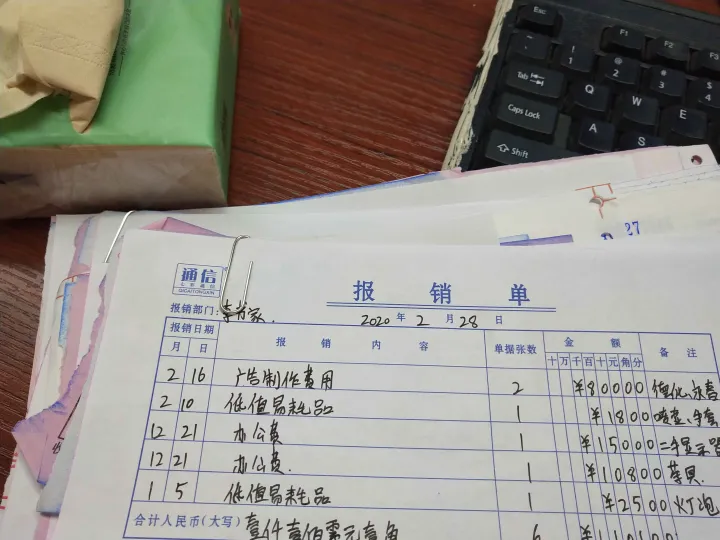 Esc
F1
F2
F3
~ ! 1 @ 2 # 3 $ 4
Tab Q W E
Caps Lock A S
Shift
27
通信
报销单
报销部门:
2020 年 2 月 28 日
报销日期 报销内容 单据张数 金额 备注
月 日 十 万 千 百 十 元 角 分
2 16 广告制作费用 2 ¥80000
2 10 低值易耗品 1 ¥1800
12 21 办公费 1 ¥15000 二手显示器
12 21 办公费. 1 ¥10800 茶具
1 5 低值易耗品 1 ¥2500 灯泡
合计人民币(大写) 壹仟壹佰零元壹角 6